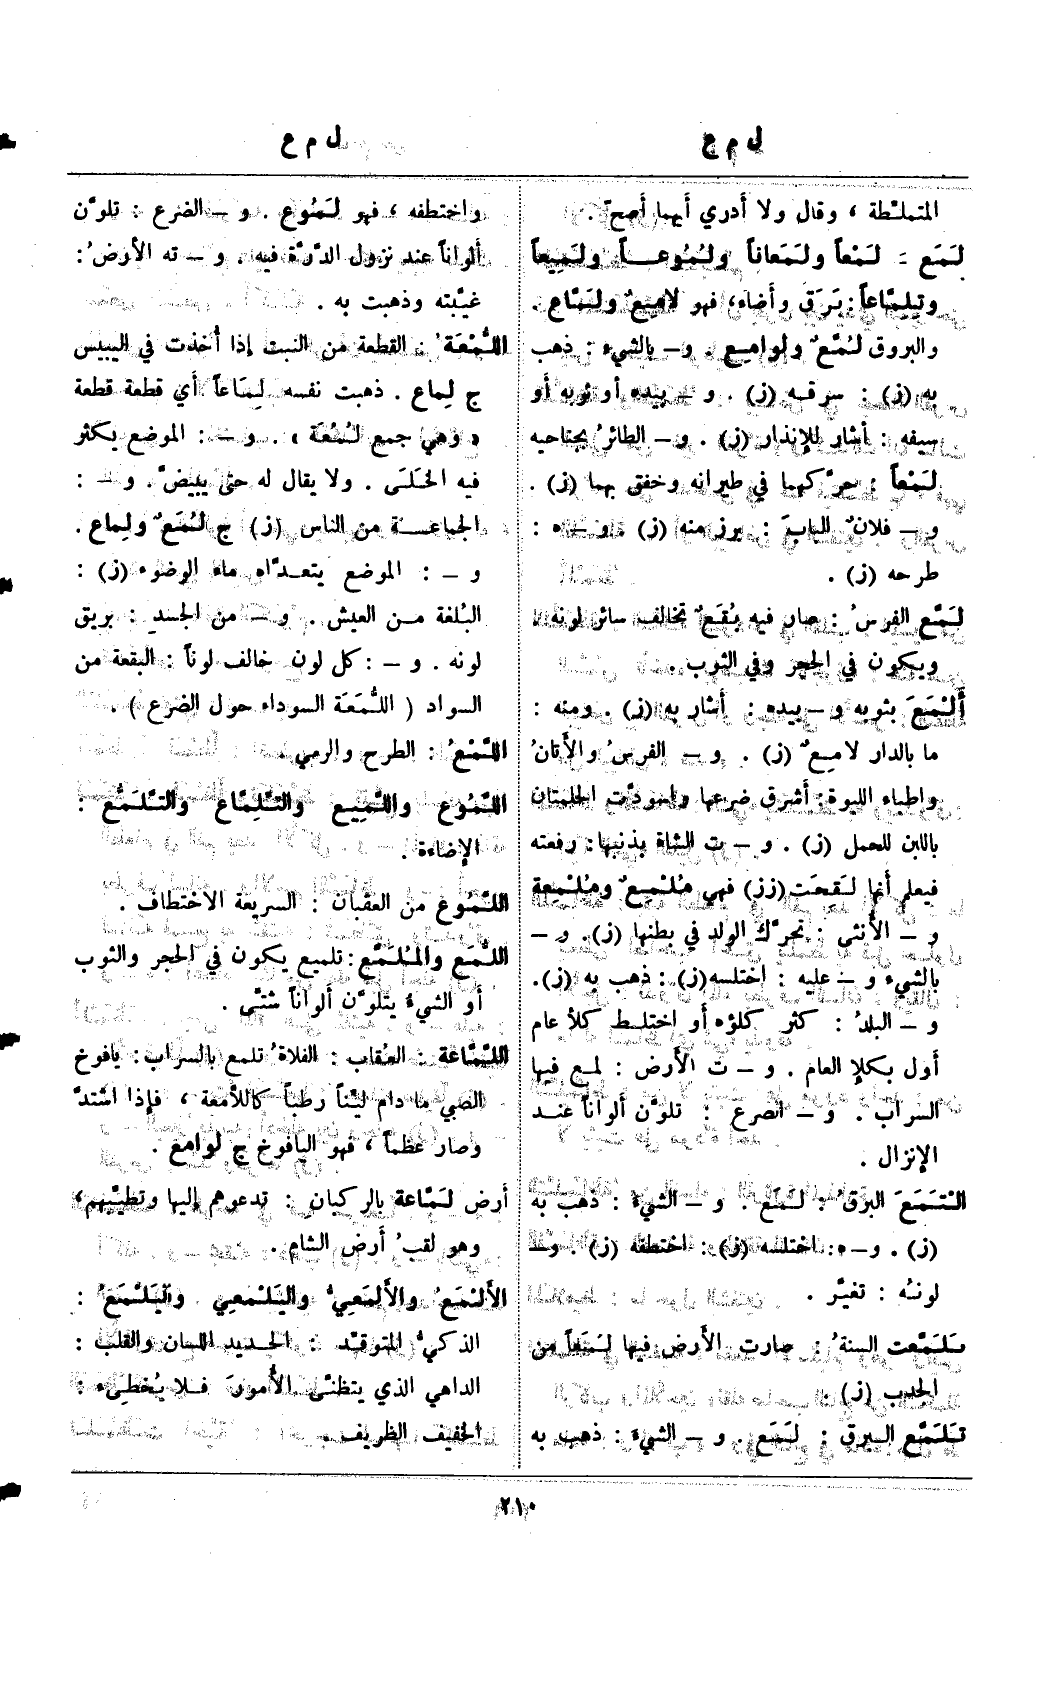 ل م ع
ل م ع
المتملطة ، وقال ولا أدري أيهما أصحّ .
لَمَع - لَمْعاً ولَمَعاناً ولُمُوعـاً ولَمِيعاً
وتِلِمَّاعاً : بَرَق وأضاء، فهو لامِعٌ ولَمَّاع .
والبروق لُمَّعٌ ولوامِع . و— بالشيء : ذهب
به (ز) : سرقـه (ز) . و — بيده أو ثوبه أو
سيفه : أشار للإنذار (ز) . و— الطائرُ بجناحيه
لَمْعاً : حرَّكهما في طيرانه وخفق بهما (ز) .
و — فلانٌ البابَ : برز منه (ز) . و — ه :
طرحه (ز) .
لَمَّع الفرسُ : صار فيه بُقَعٌ تخالف سائر لونه ،
ويكون في الحجر وفي الثوب .
أَلْمَعَ بثوبه و — بيده : أشار به (ز) . ومنه :
ما بالدار لامِعٌ (ز) . و — الفرسُ والأَتانُ
واطباء اللبوة : أشرق ضرعها واسودَّت الحلمتان
باللبن للحمل (ز) . و — ت الشاة بذنبها : رفعته
فيعلم أنها لَقِحَت (زز) فهي مُلْمِعٌ ومُلْمِعة
و — الأُنثى : تحرَّك الولد في بطنها (ز). و —
بالشيء و — عليه : اختلسه(ز) : ذهب به (ز).
و — البلدُ : كثر كلؤه أو اختلـط كلأ عام
أول بكلإ العام . و — ت الأرض : لمـع فيها
السراب . و — الضرع : تلوَّن ألواناً عنـد
الإنزال .
الْتَمَعَ البرقُ : لَمَع . و — الشيءَ : ذهب به
(ز) . و— ه : اختلسه (ز) : اختطفه (ز) . و—
لونُه : تغيَّر .
تَلَمَّعت السنةُ : صارت الأرض فيها لُمَعاً من
الجدب (ز) .
تَلَمَّع البرق : لَمَع . و — الشيءَ : ذهب به
واختطفه ، فهو لَمُوع . و — الضرع : تلوَّن
ألواناً عند نزول الدِّرَّة فيه . و — ته الأرضُ :
غيَّبته وذهبت به .
اللُّمْعَةُ : القطعة من النبت إذا أخذت في اليبيس
ج لِماع . ذهبت نفسه لِمَاعاً أي قطعة قطعة
« وهي جمع لُمْعَة » . و — : الموضع يكثر
فيه الحَلَى . ولا يقال له حتى يبيضَّ . و — :
الجماعـة من الناس (ز) ج لُمَعٌ ولِماع .
و — : الموضع يتعدَّاه ماء الوضوء (ز) :
البُلغة مـن العيش . و — من الجسد : بريق
لونه . و — : كل لون خالف لوناً : البقعة من
السواد ( اللُّمْعَة السوداء حول الضرع ) .
اللَّمْعُ : الطرح والرمي .
اللُّمُوع واللَّمِيع والتِّلِمَّاع والتَّلَمُّع :
الإضاءة .
اللَّمُوع من العقبان : السريعة الاختطاف .
اللُّمَع والمُلَمَّع : تلميع يكون في الحجر والثوب
أو الشيء يتلوَّن ألواناً شتَّى .
اللَّمَّاعة : العُقاب : الفلاةُ تلمع بالسراب : يافوخ
الصبي ما دام ليِّناً رطباً كاللاَّمعة ، فإذا اشتدَّ
وصار عظماً ، فهو اليافوخ ج لوامع .
أرض لَمَّاعة بالركبان : تدعوهم إليها وتطيِّبهم،
وهو لقبُ أرض الشام .
الأَلْمَعُ والأَلمَعِيُّ واليَلْمَعي واليَلْمَعُ :
الذكيُّ المتوقِّد : الحـديد اللسان والقلب :
الداهي الذي يتظنَّى الأُمورَ فـلا يُخطِىء :
الخفيف الظريف .
٢١٠